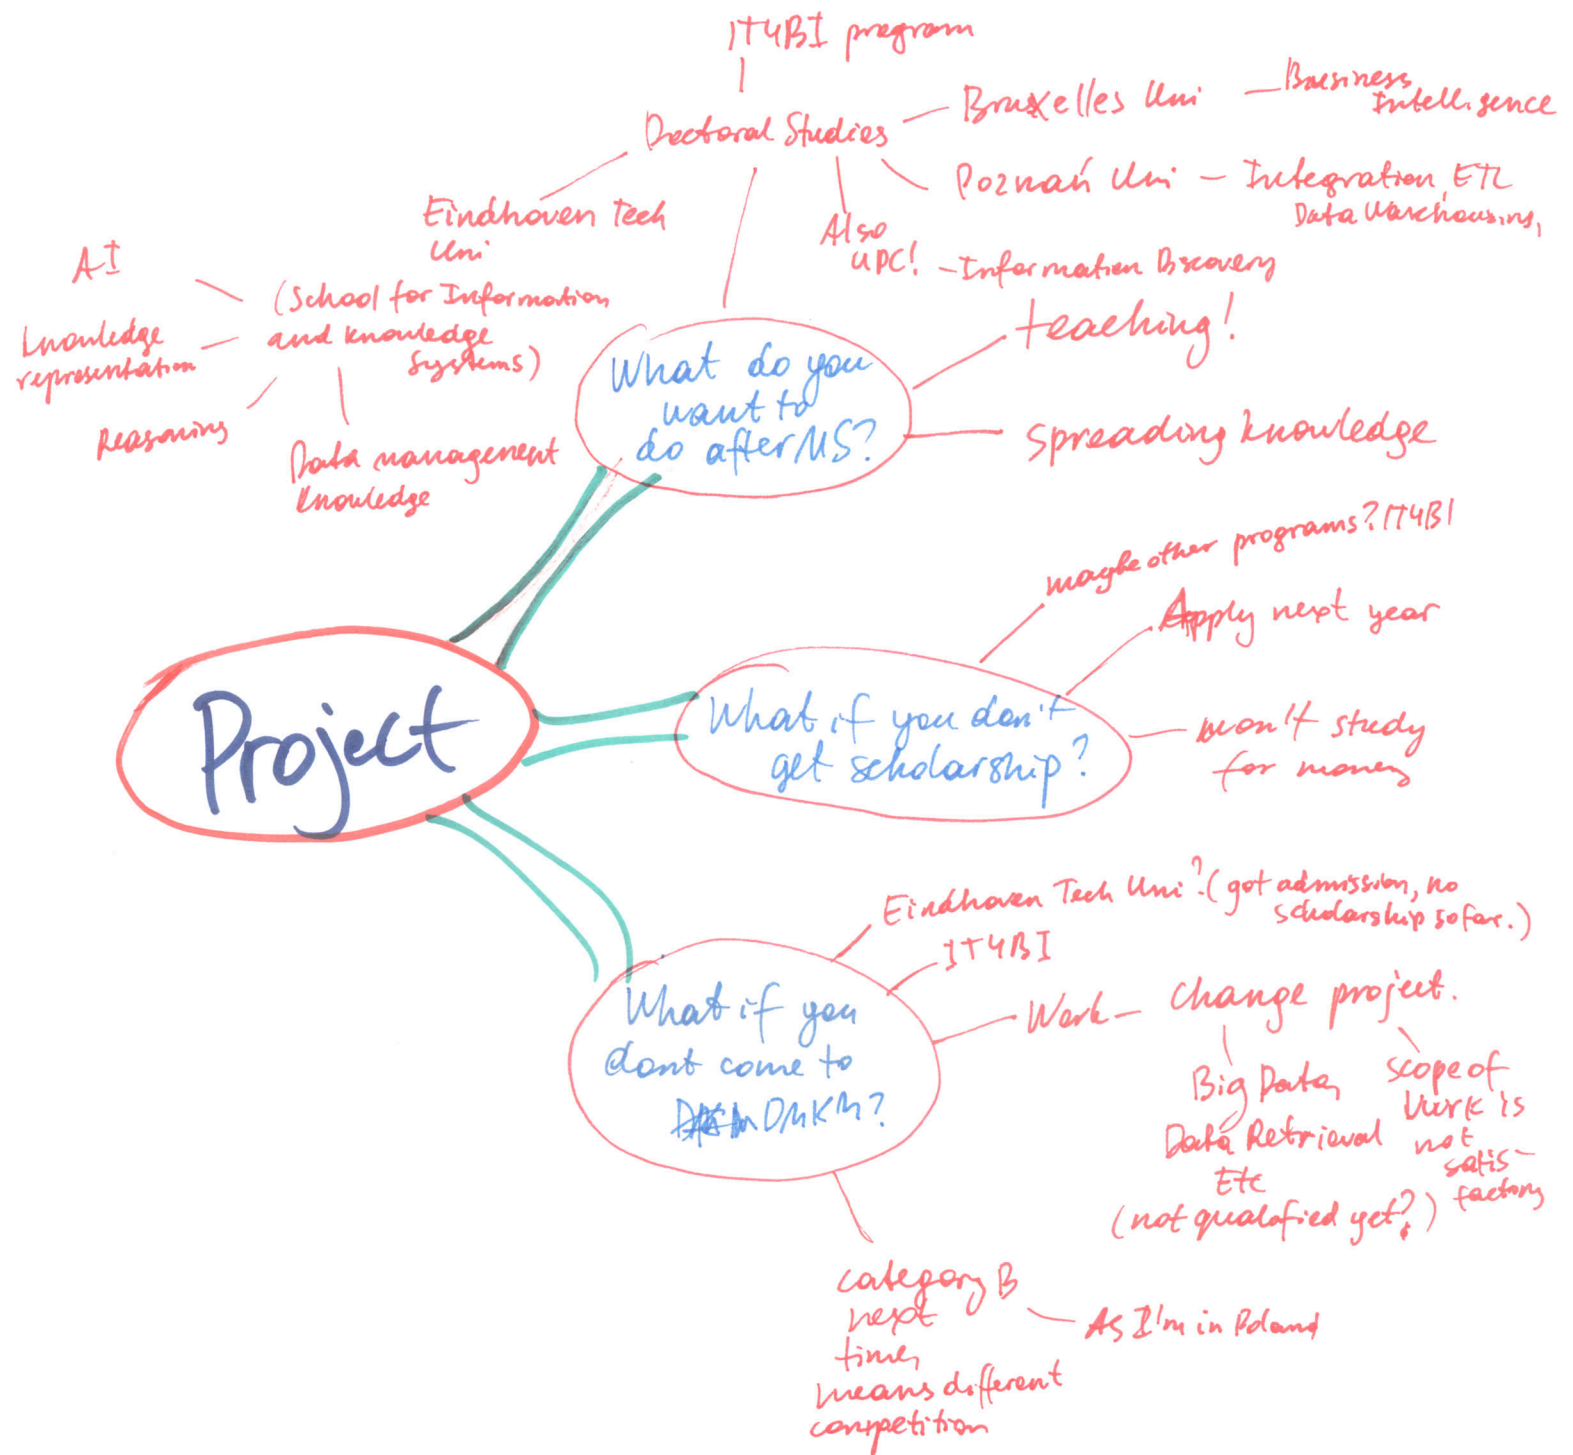 IT4BI program
Doctoral Studies
Bruxelles Uni
Business
Intelligence
Poznań Uni
Integration, ETL
Data Warehousing,
Also
UPC!
Information Discovery
Eindhoven Tech
Uni
(School for Information
and Knowledge
Systems)
AI
Knowledge
representation
Reasoning
Data management
Knowledge
What do you
want to
do after MS?
teaching!
spreading knowledge
Project
What if you don't
get scholarship?
maybe other programs? IT4BI
Apply next year
won't study
for money
What if you
dont come to
DMKM?
Eindhoven Tech Uni? (got admission, no
scholarship so far.)
IT4BI
Work
change project.
Big Data,
Data Retrieval
Etc
(not qualified yet?)
scope of
work is
not
satis-
factory
category B
next
time,
means different
competition
As I'm in Poland